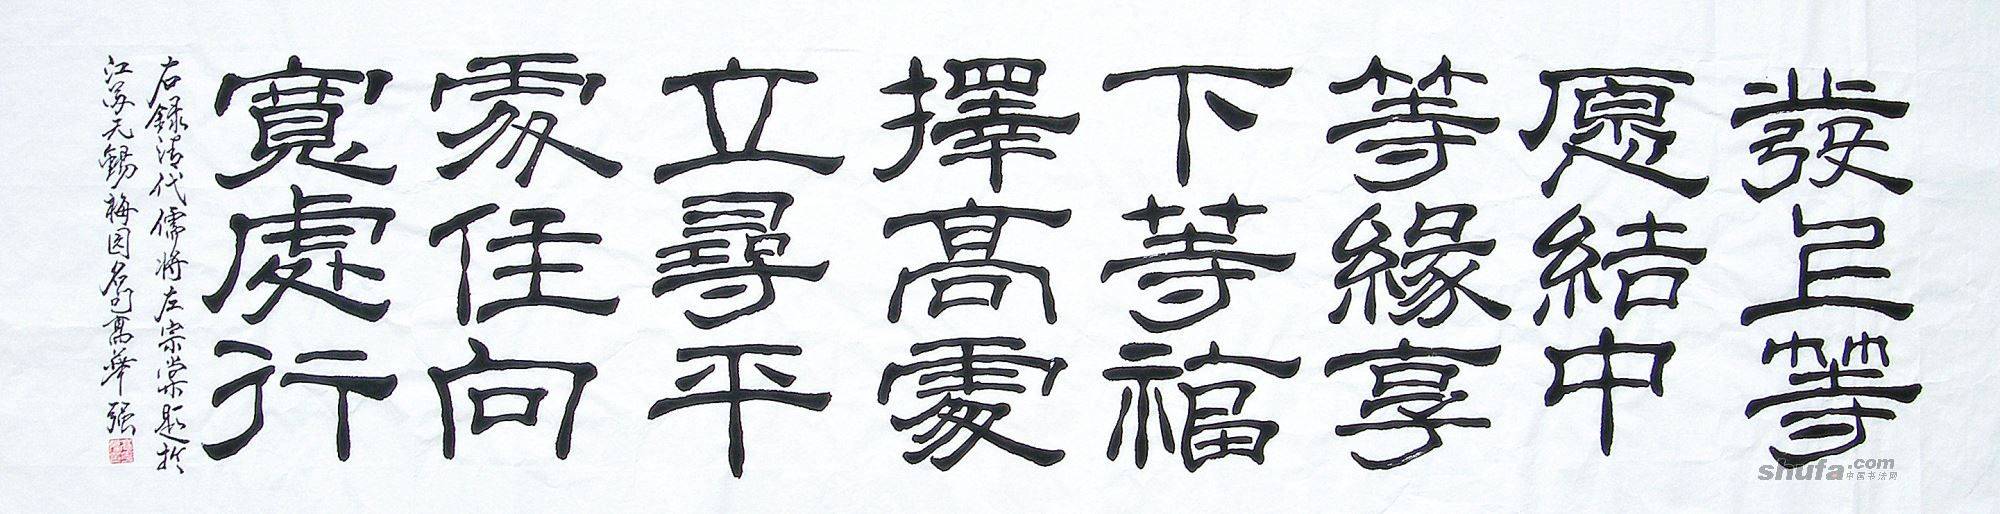 發上等
愿結中
等緣享
下等福
擇高處
立尋平
處住向
寬處行
右録清代儒将左宗棠题於
江苏无锡梅园名句高华强
shufa.com
中国书法网